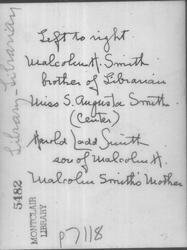 Left to right
Malcolm H. Smith
brother of Librarian
Miss S. Augusta Smith
(Center)
Harold Ladd Smith
son of Malcolm H.
Malcolm Smith's Mother
p7118
Library - Librarian
5482
MONTCLAIR
LIBRARY